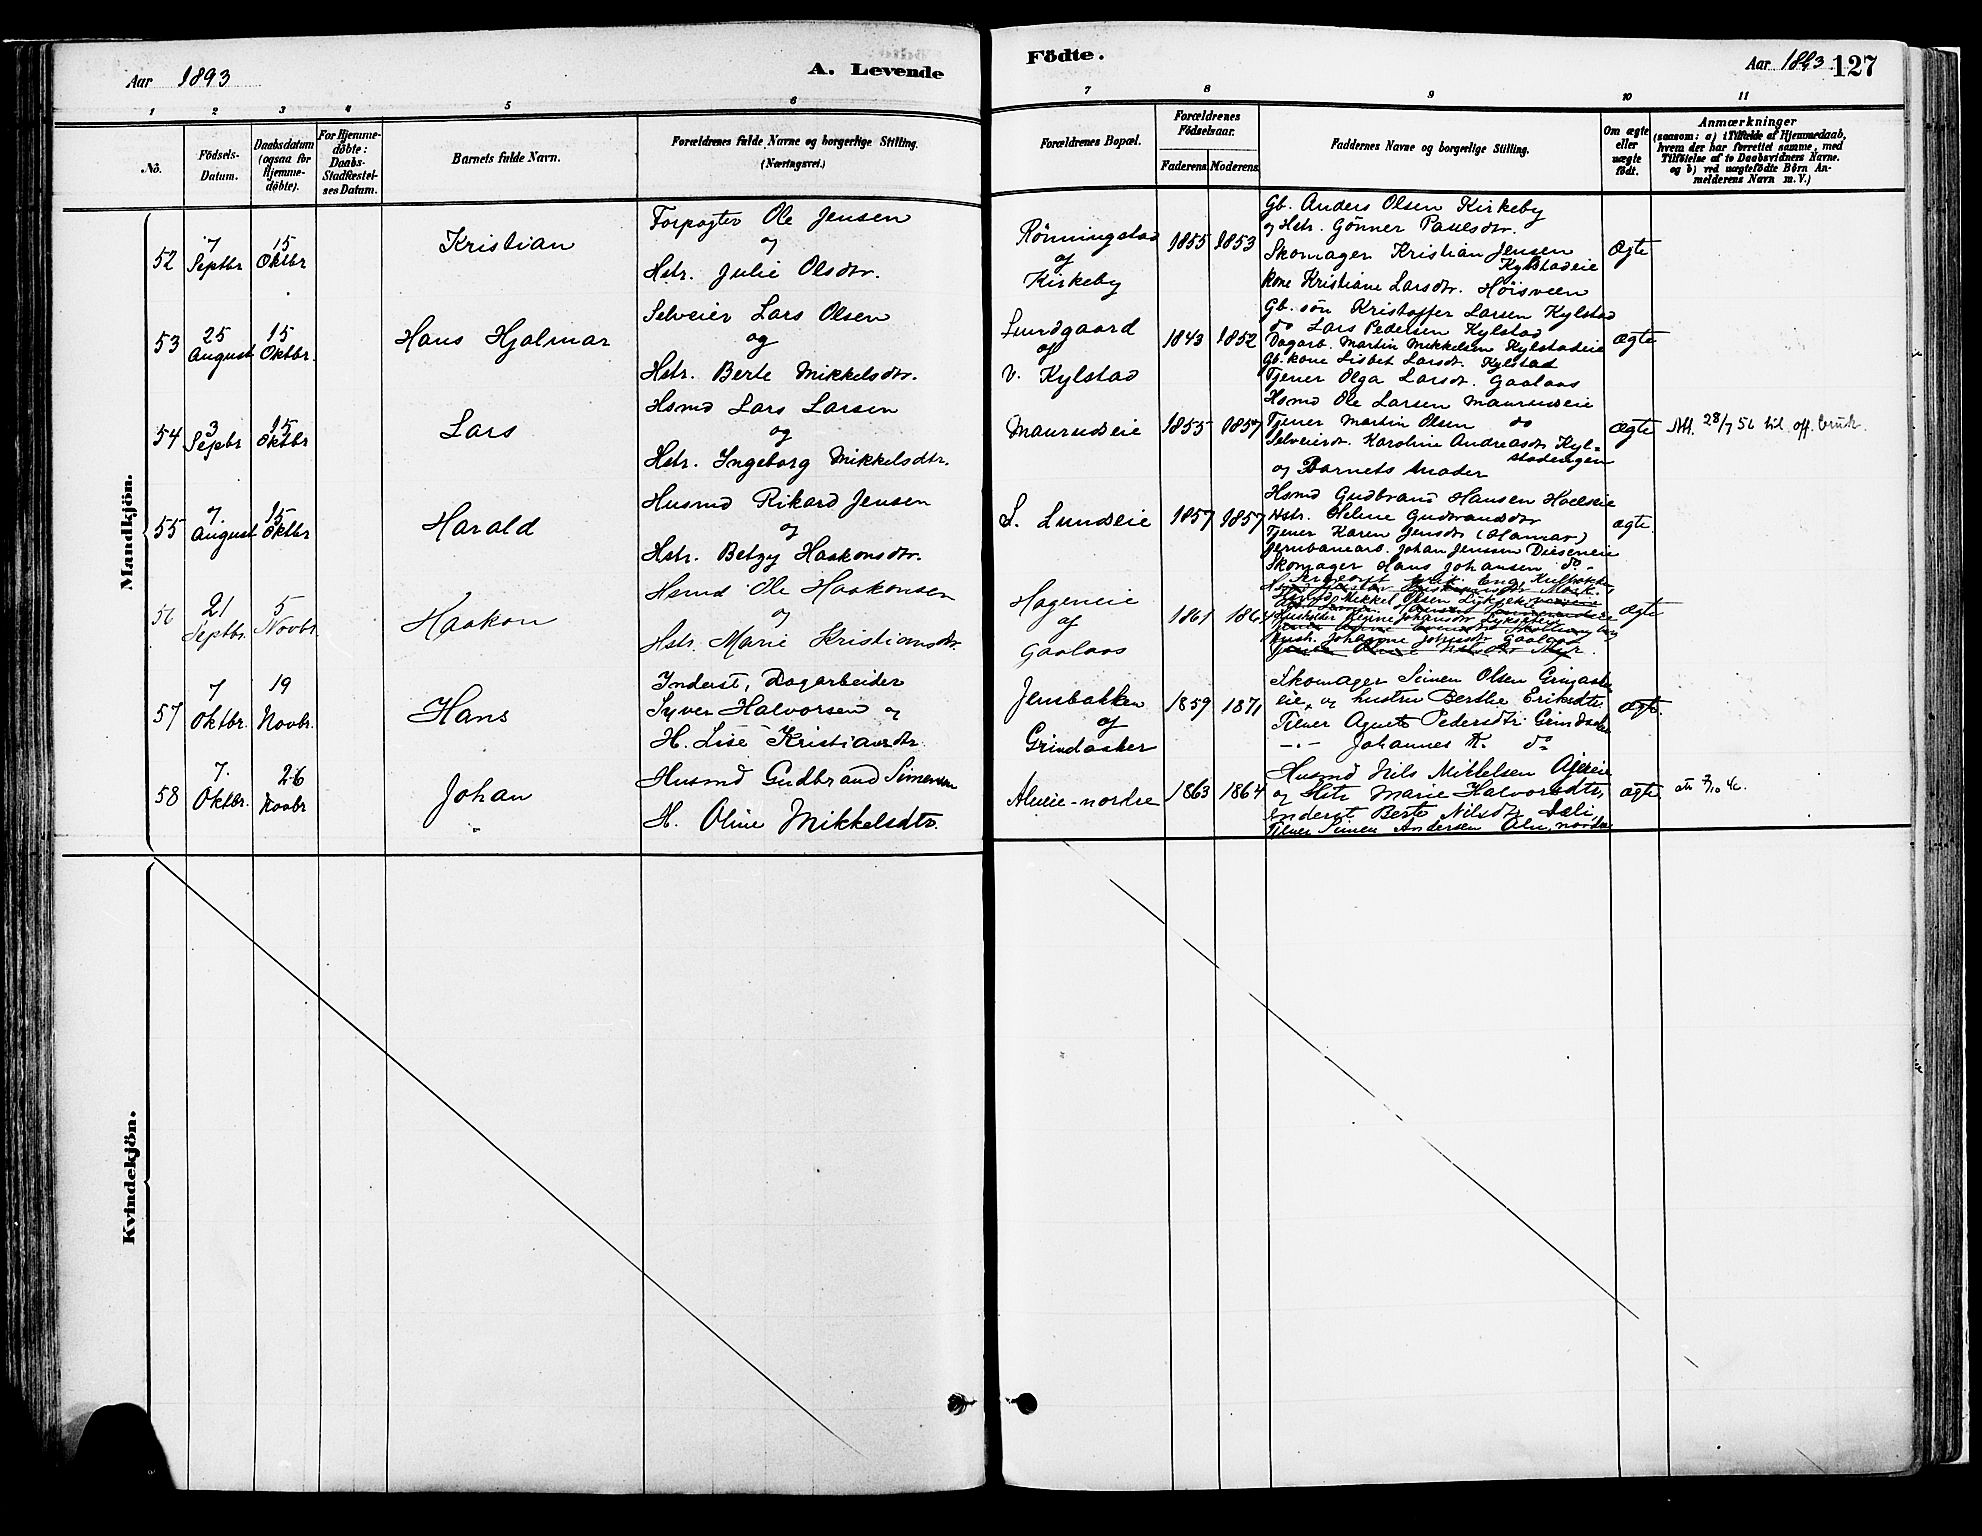 Aar 1893
A. Levende
Födte.
Aar 1893
127
1 2 3 4 5 6 7 8 9 10 11
No.
Födsels-Datum.
Daabsdatum (ogsaa for Hjemmedøbte).
For Hjemmedøbte: Daabs-Stadfæstelses Datum.
Barnets fulde Navn.
Forældrenes fulde Navne og borgerlige Stilling.
(Næringsvei.)
Forældrenes Bopæl.
Forældrenes Fødselsaar.
Faderens Moderens
Faddernes Navne og borgerlige Stilling.
Om ægte eller uægte født.
Anmærkninger
(saasom: a) i Tilfælde af Hjemmedaab,
hvem der har forrettet samme, med
Tilføielse af to Daabsvidners Navne.
og b) ved uægtefødte Børn An-
melderens Navn m. V.)
Mandkjön.
52
7 Septbr
15 Oktbr
Kristian
Forpagter Ole Jensen
og
Hstr. Julie Olsdtr.
Rönningstad
af
Kirkeby
1855 1853
Gb. Anders Olsen Kirkeby
og Hstr. Gönner Paulsdtr.
Skomager Kristian Jensen
Kylstadeie
Kone Kristiane Larsdtr. Höisveen
Ægte
53
25 August
15 Oktbr.
Hans Hjalmar
Selveier Lars Olsen
og
Hstr. Berte Mikkelsdtr.
Lundgaard
af
V. Kylstad
1843 1852
Gb. sön Kristoffer Larsen Kylstad
do Lars Pedersen Kylstad
Dagarb. Martin Mikkelsen Kylstadeie
Gb. kone Lisbet Larsdtr. Kylstad
Tjener Olga Larsdtr. Gaalaas
ægte
54
3 Septbr
15 Oktbr
Lars
Hsmd Lars Larsen
og
Hstr. Ingeborg Mikkelsdtr.
Maurudseie
1855 1857
Hsmd Ole Larsen Maurudseie
Tjener Martin Olsen do
Selveierdt. Karoline Andreasdt. Kyl-
stadengen
og Barnets Moder
ægte
Att. 28/7 56 til off. bruk.
55
7 August
15 Oktbr
Harald
Husmd Rikard Jensen
og
Hstr. Betzy Haakonsdtr.
L. Lundseie
1857 1857
Hsmd Gudbrand Hansen Hoelseie
Hstr. Helene Gudbrandsdtr
Tjener Karen Jensdtr (Hamar)
Jernbanearb. Johan Jenssen Dieseneie
Skomager Hans Johansen do -
ægte.
56
21 Septbr.
5 Novbr.
Haakon
Hsmd Ole Haakonsen
og
Hstr. Marie Kristiansdtr.
Hageneie
af
Gaalaas
1861 1864
Mikkel Olsen Lykseth
Regine Johansdtr
Johanne Johnsdtr Gaalaas
ægte
57
7 Oktbr.
19 Novbr.
Hans
Inderst, Dagarbeider
Syver Halvorsen og
H. Lise Kristiansdtr.
Jensbakken
af
Grindaaker
1859 1871
Skomager Simen Olsen Grinaaker
eie, og hustru Berthe Eriksdtr.
Tilner Agnete Pedersdtr. Grindaaker
-"- Johannes K. do
Ægte.
58
7. Oktbr.
26 Novbr
Johan
Husmd Gudbrand Simensen
H. Oline Mikkelsdtr.
Alueie-nordre
1863 1864
Husmd Nils Mikkelsen
og Hstr Marie Halvorsdtr.
Inderst Berte Nilsdtr
Tilner Simen Andersen Alu, nordre
ægte.
Kvindekjön.